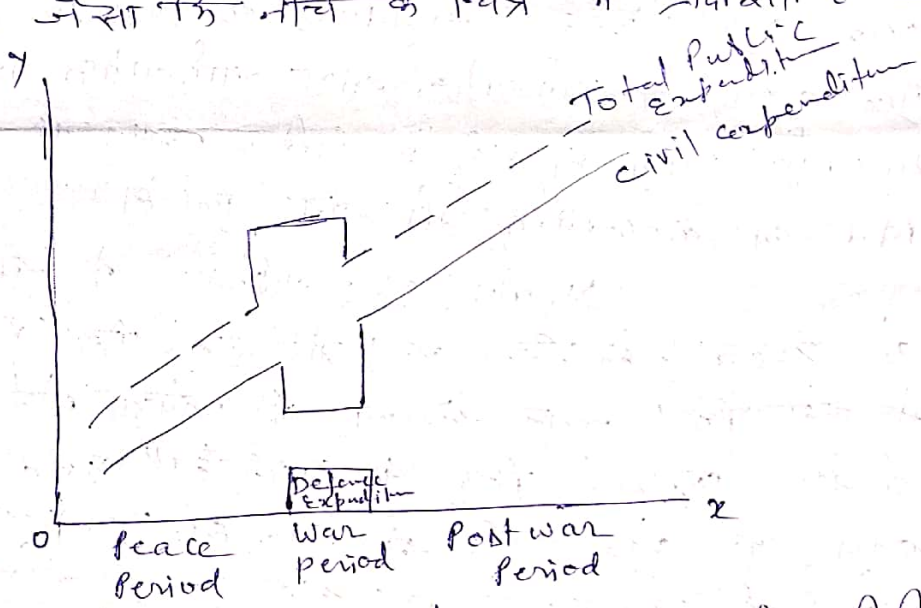 जैसा कि नीचे के चित्र में
y
Total Public
Expenditure
Civil expenditure
Defence
Expenditure
x
O
Peace
Period
War
period
Post war
Period